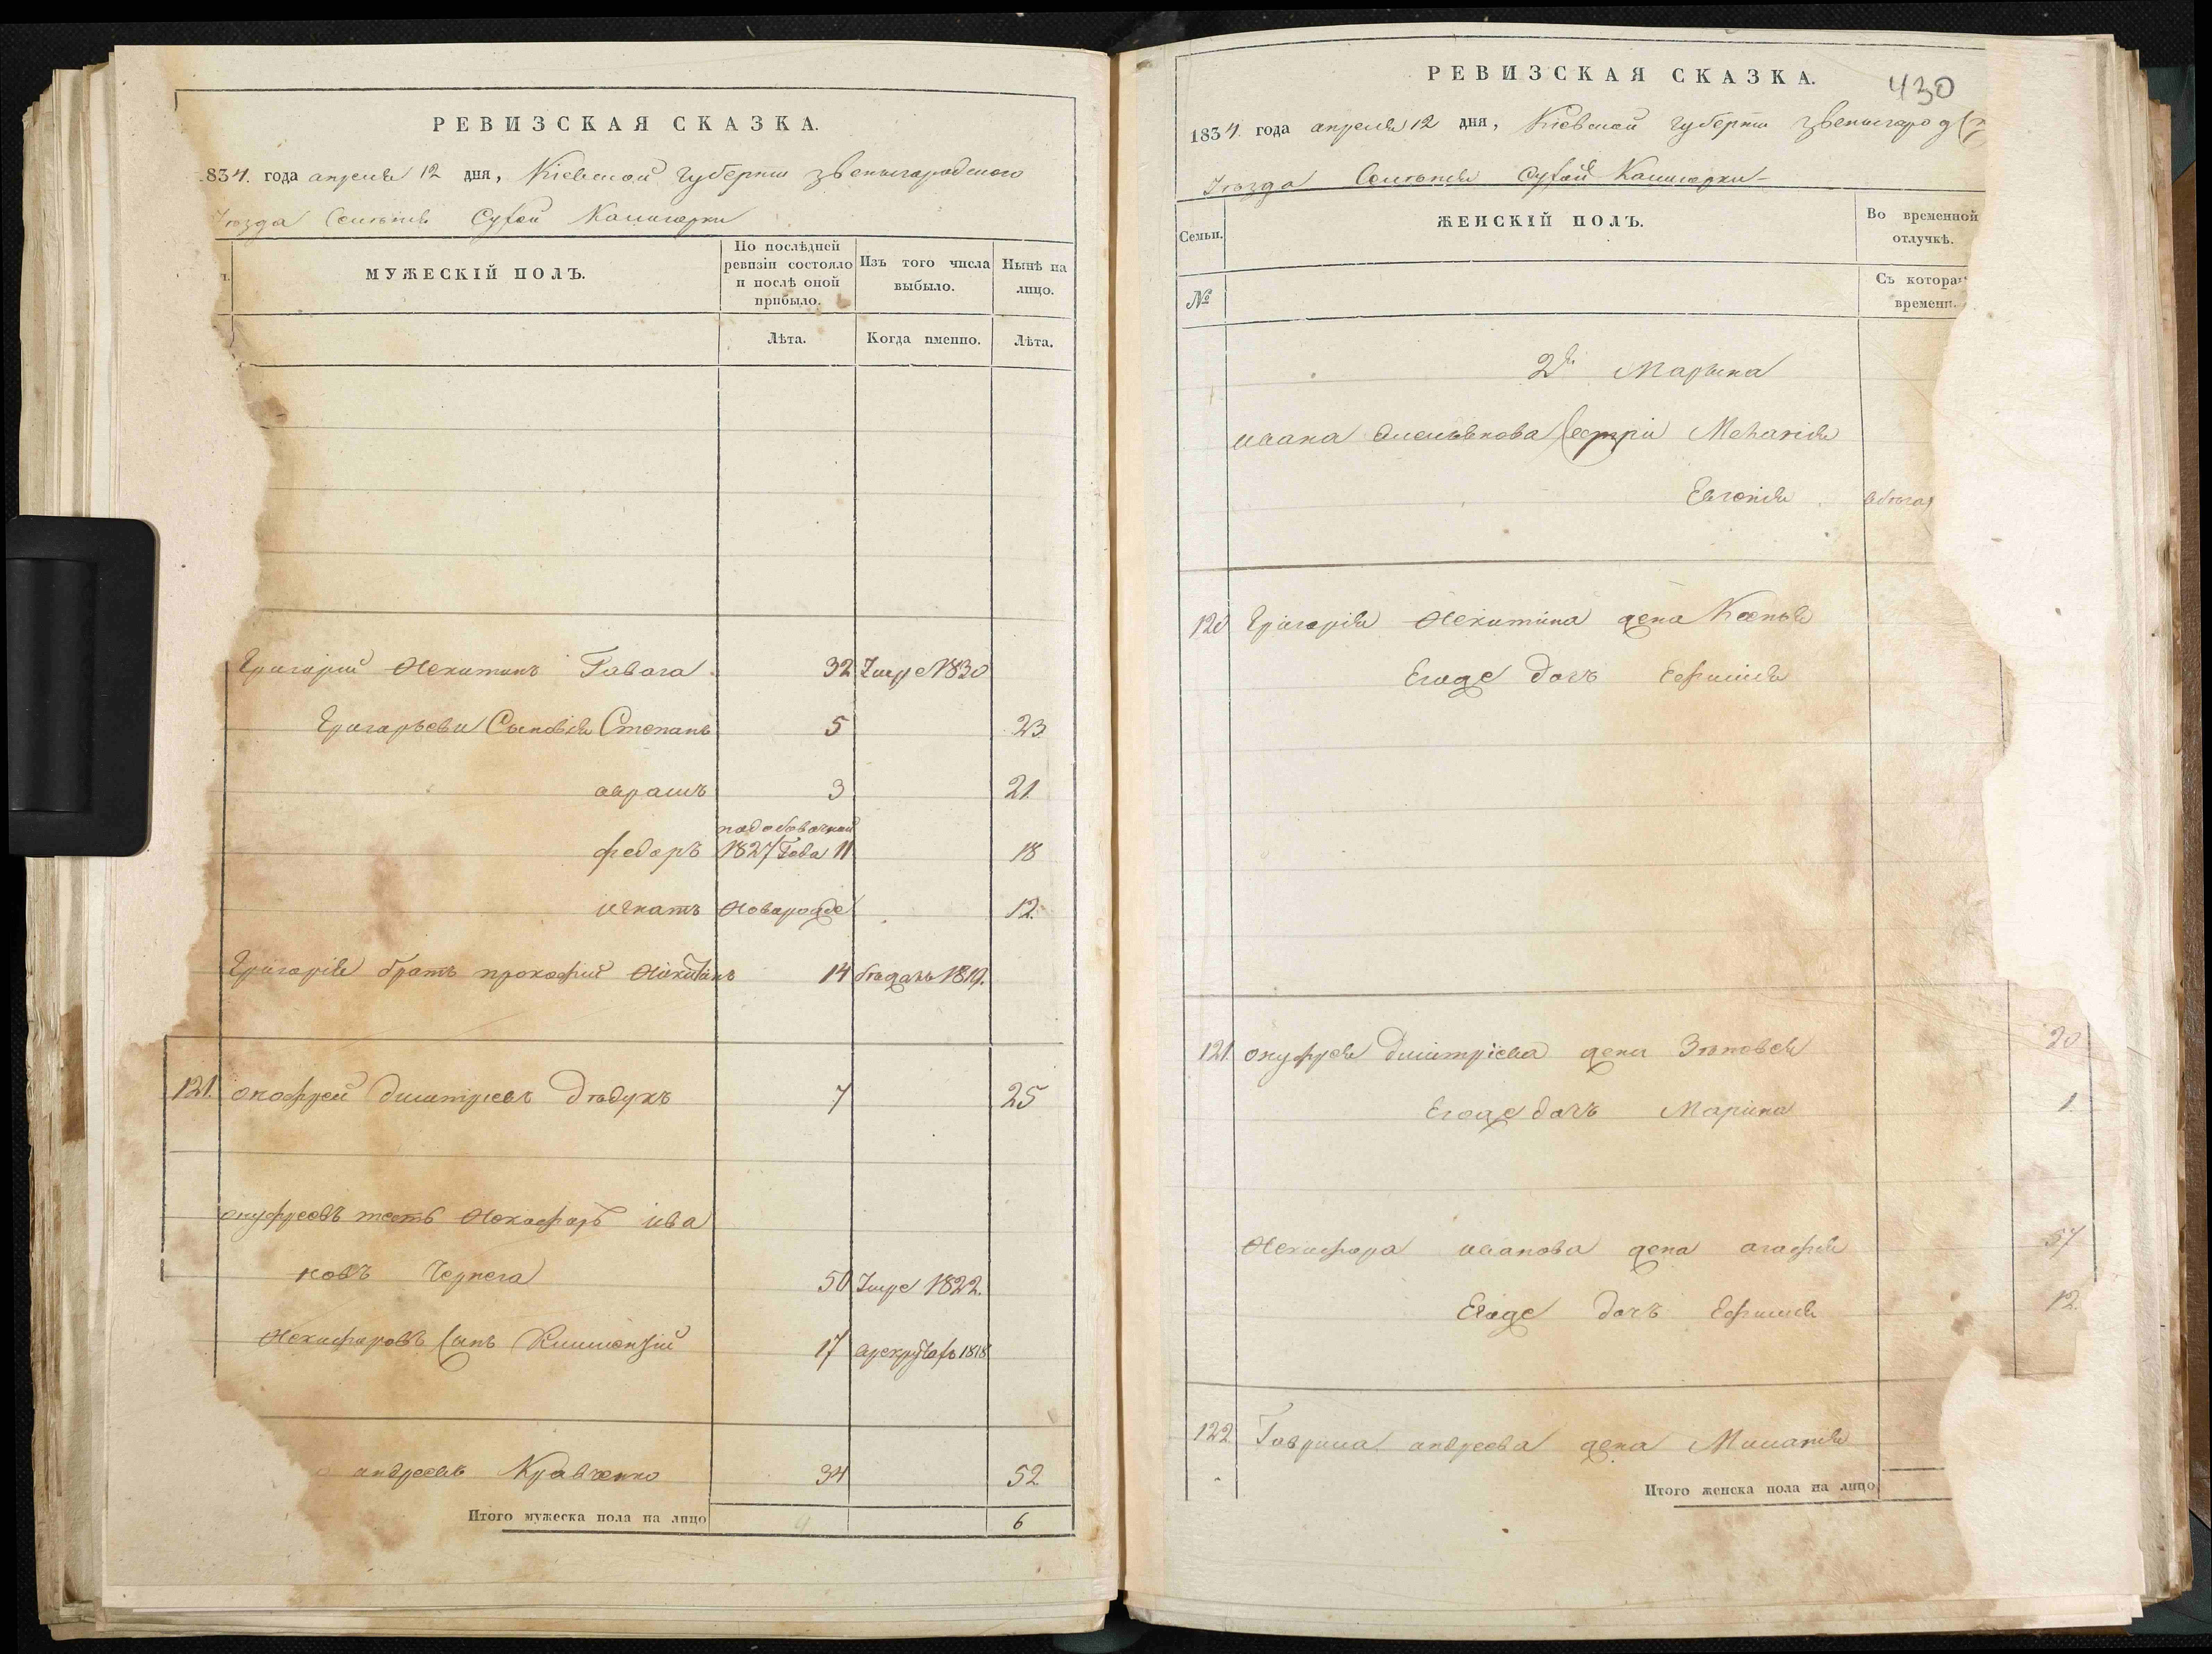 РЕВИЗСКАЯ СКАЗКА.
834. года апреля 12 дня, Киевской Губернии Звенигородского
уѣзда Селенія Сухой Калигорки
МУЖЕСКІЙ ПОЛЪ.
По послѣдней ревизіи состояло и послѣ оной прибыло.
Изъ того числа выбыло.
Нынѣ на лицо.
Лѣта.
Когда именно.
Лѣта.
Григорий Некитинъ Гавага 32 Умре 1830
Григорьеви Сыновія Степанъ 5 23
аврамъ 3 21
федоръ 1827 Года 11 18
игнатъ Новорожде 12.
Григорія братъ прокофий Никитинъ 14 бѣжалъ 1819.
121. онофрей дмитриевъ Дѣдукъ 7 25
онуфреевъ тестъ Некафаръ ива
новъ Чернега 50 Умре 1822.
Некифоровъ Сынъ 17 1818
андреевъ Кравченко 34 52
Итого мужеска пола на лицо 6
430
РЕВИЗСКАЯ СКАЗКА.
1834. года апреля 12 дня, Киевской Губернии Звенигород
Уѣзда Селенія Сухой Калигорки
Семьи.
ЖЕНСКІЙ ПОЛЪ.
Во временной отлучкѣ.
№
Съ котора
времени.
2я Марына
ивана Сестри Меланія
Евгенія
120 Григорія Некитина жена Ксенья
Егоже дочъ Ефимия
121. онуфрея дмитріева жена Зѣновея 20
Егоже дочъ Марина 1
Некифора иванова жена агафия 57
Егоже дочъ Ефимия 12.
122 Гаврила андреева жена Миланія
Итого женска пола на лицо